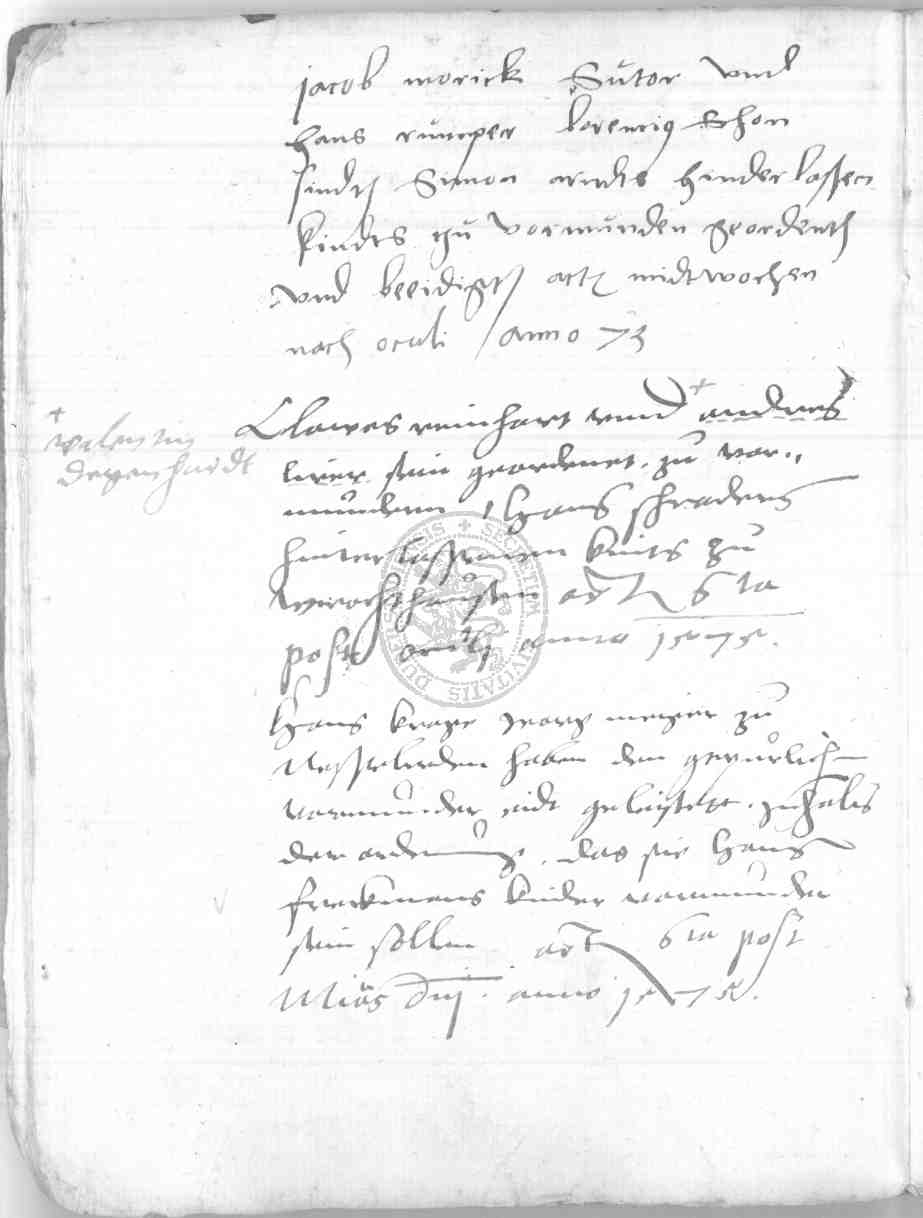 jacob morick Sutor vnd
hans rumper lorentz Schon
sindt Simon arndts hinderlassen
kindts zu vormunden geordenth
vnd beeidigt act midtwochen
nach oculi anno 73
+
valentin
degenhardt
Clawes reinhart vnnd + andres
sein geordenet zu vor„
mundern, Hans schraders
hinterlassenen kints zu
act 6ta
post oculj anno 1575.
Hans krage Jorg meyer zu
Nesselreden haben den gepurlich
vormunder eidt geleistet. Inhalts
der ordenung, das sie Hans
kinder vormunder
sein sollen act 6ta post
dnj. anno 1575.